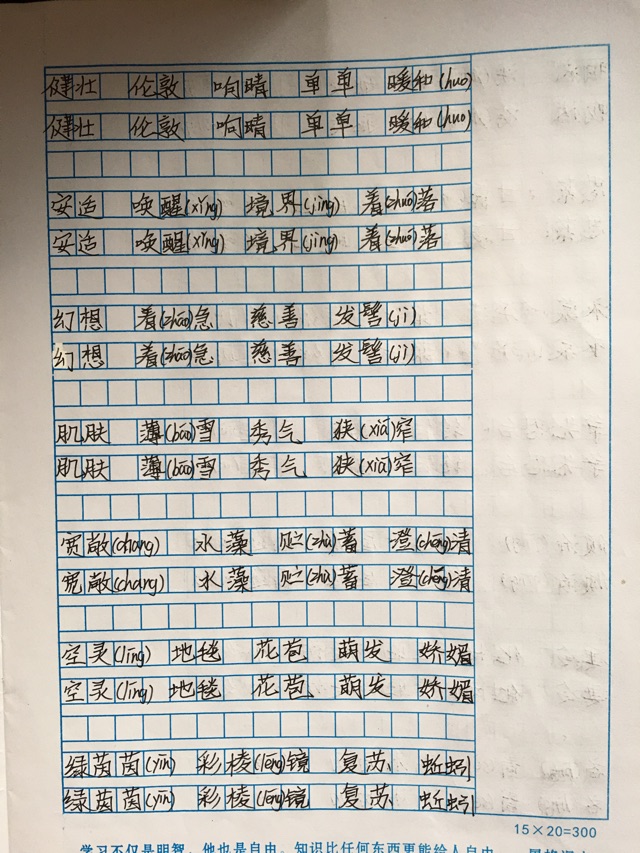 健壮 伦敦 响晴 单单 暖和(huo)
健壮 伦敦 响晴 单单 暖和(huo)
安适 唤醒(xǐng) 境界(jìng) 着(zhuó)落
安适 唤醒(xǐng) 境界(jìng) 着(zhuó)落
幻想 着(zhāo)急 慈善 发髻(jì)
幻想 着(zhāo)急 慈善 发髻(jì)
肌肤 薄(báo)雪 秀气 狭(xiá)窄
肌肤 薄(báo)雪 秀气 狭(xiá)窄
宽敞(chang) 水藻 贮(zhù)蓄 澄(chéng)清
宽敞(chang) 水藻 贮(zhù)蓄 澄(chéng)清
空灵(líng) 地毯 花苞 萌发 娇媚
空灵(líng) 地毯 花苞 萌发 娇媚
绿茵茵(yīn) 彩棱(léng)镜 复苏 蚯蚓
绿茵茵(yīn) 彩棱(léng)镜 复苏 蚯蚓
15×20=300
学习不仅是明智，他也是自由。知识比任何东西更能给人自由